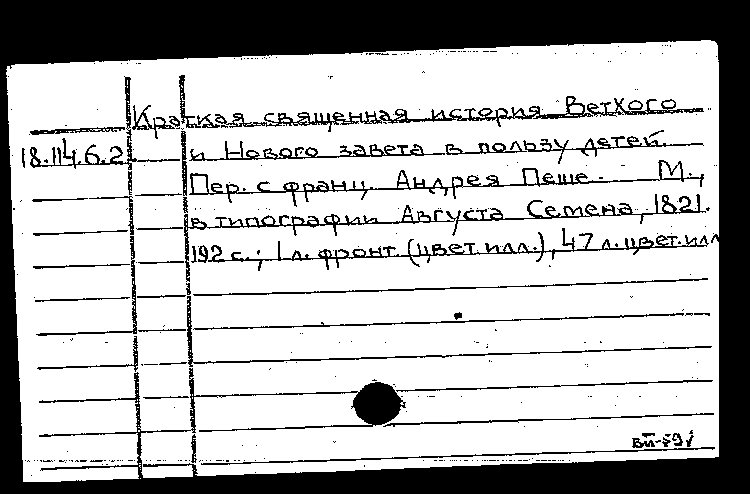 Краткая священная история Ветхого
18.114.6.2 и Нового завета в пользу детей.
Пер. с франц. Андрея Пеше. М.,
в типографии Августа Семена, 1821.
192 с.; 1 л. фронт. (цвет. илл.), 47 л. цвет. илл